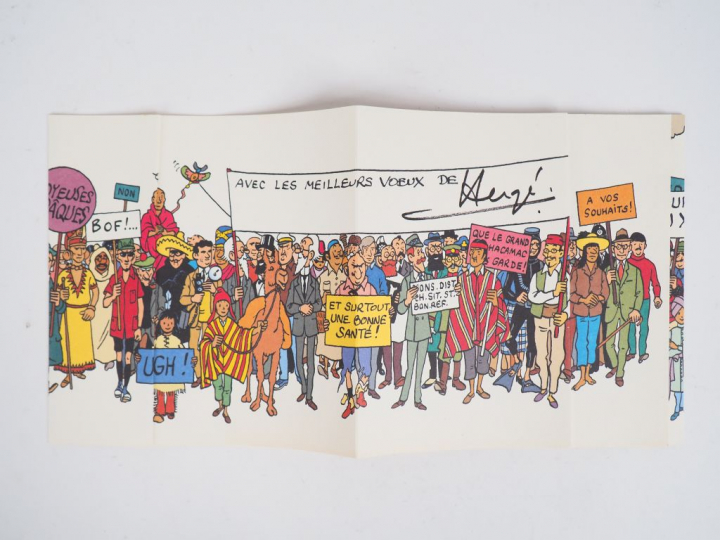 YEUSES
ÂQUES
NON
BOF!...
AVEC LES MEILLEURS VOEUX DE Hergé.
A VOS
SOUHAITS!
QUE LE GRAND
HACAMAC
GARDE!
ONS. DIST.
CH. SIT. ST.
BON. REF.
ET SURTOUT
UNE BONNE
SANTÉ!
UGH!